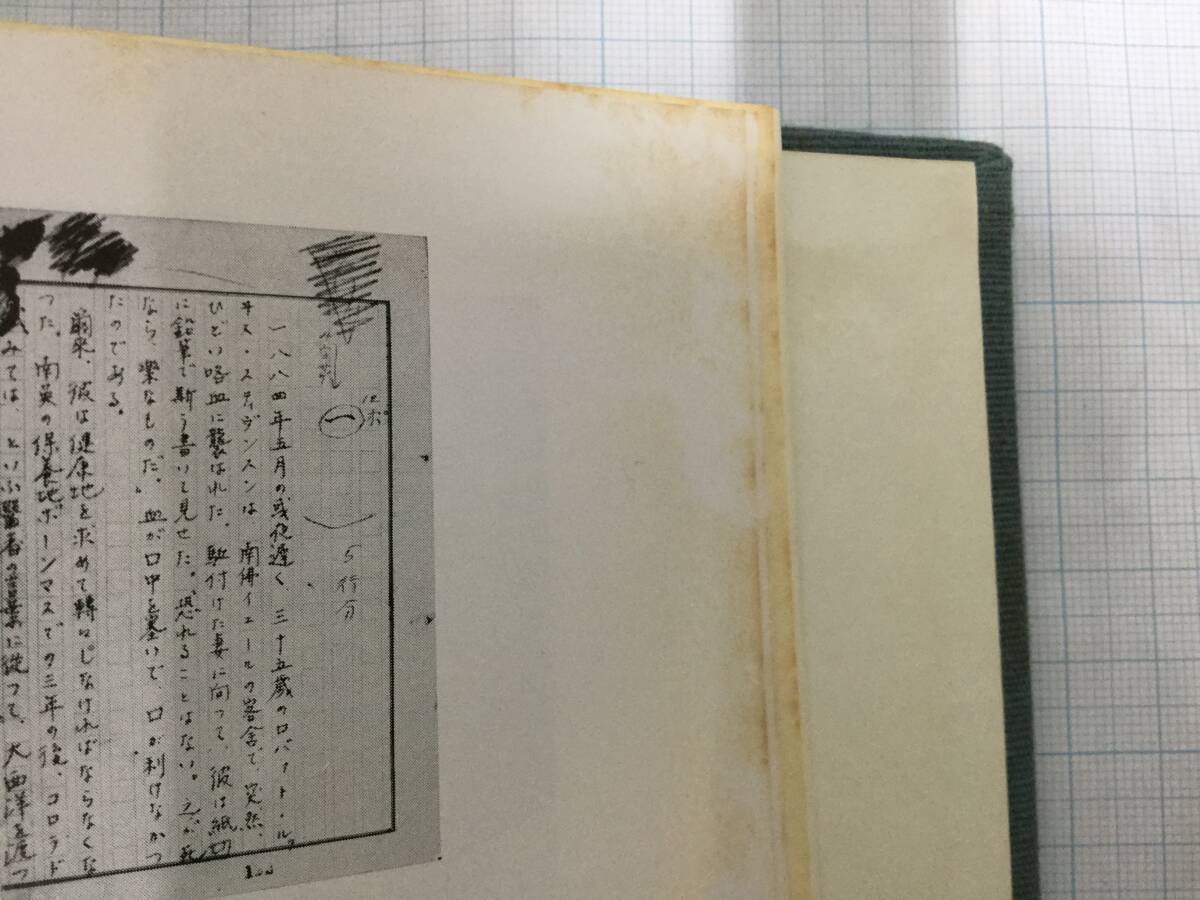 一
5行分
一八八四年五月の或夜遅く、三十五歳のロバァト・ル
ヰス・スティヴンスンは、南佛イエールの客舎で、突然、
ひどい喀血に襲はれた。駈付けた妻に向つて、彼は紙切
に鉛筆で斯う書いて見せた。「恐れることはない。之が死
なら、楽なものだ。」血が口中を塞いで、口が利けなかつ
たのである。
爾来、彼は健康地を求めて轉々しなければならなくな
つた。南英の保養地ボーンマスでの三年の後、コロラド
みては、といふ醫者の言葉に従つて、大西洋を渡つ